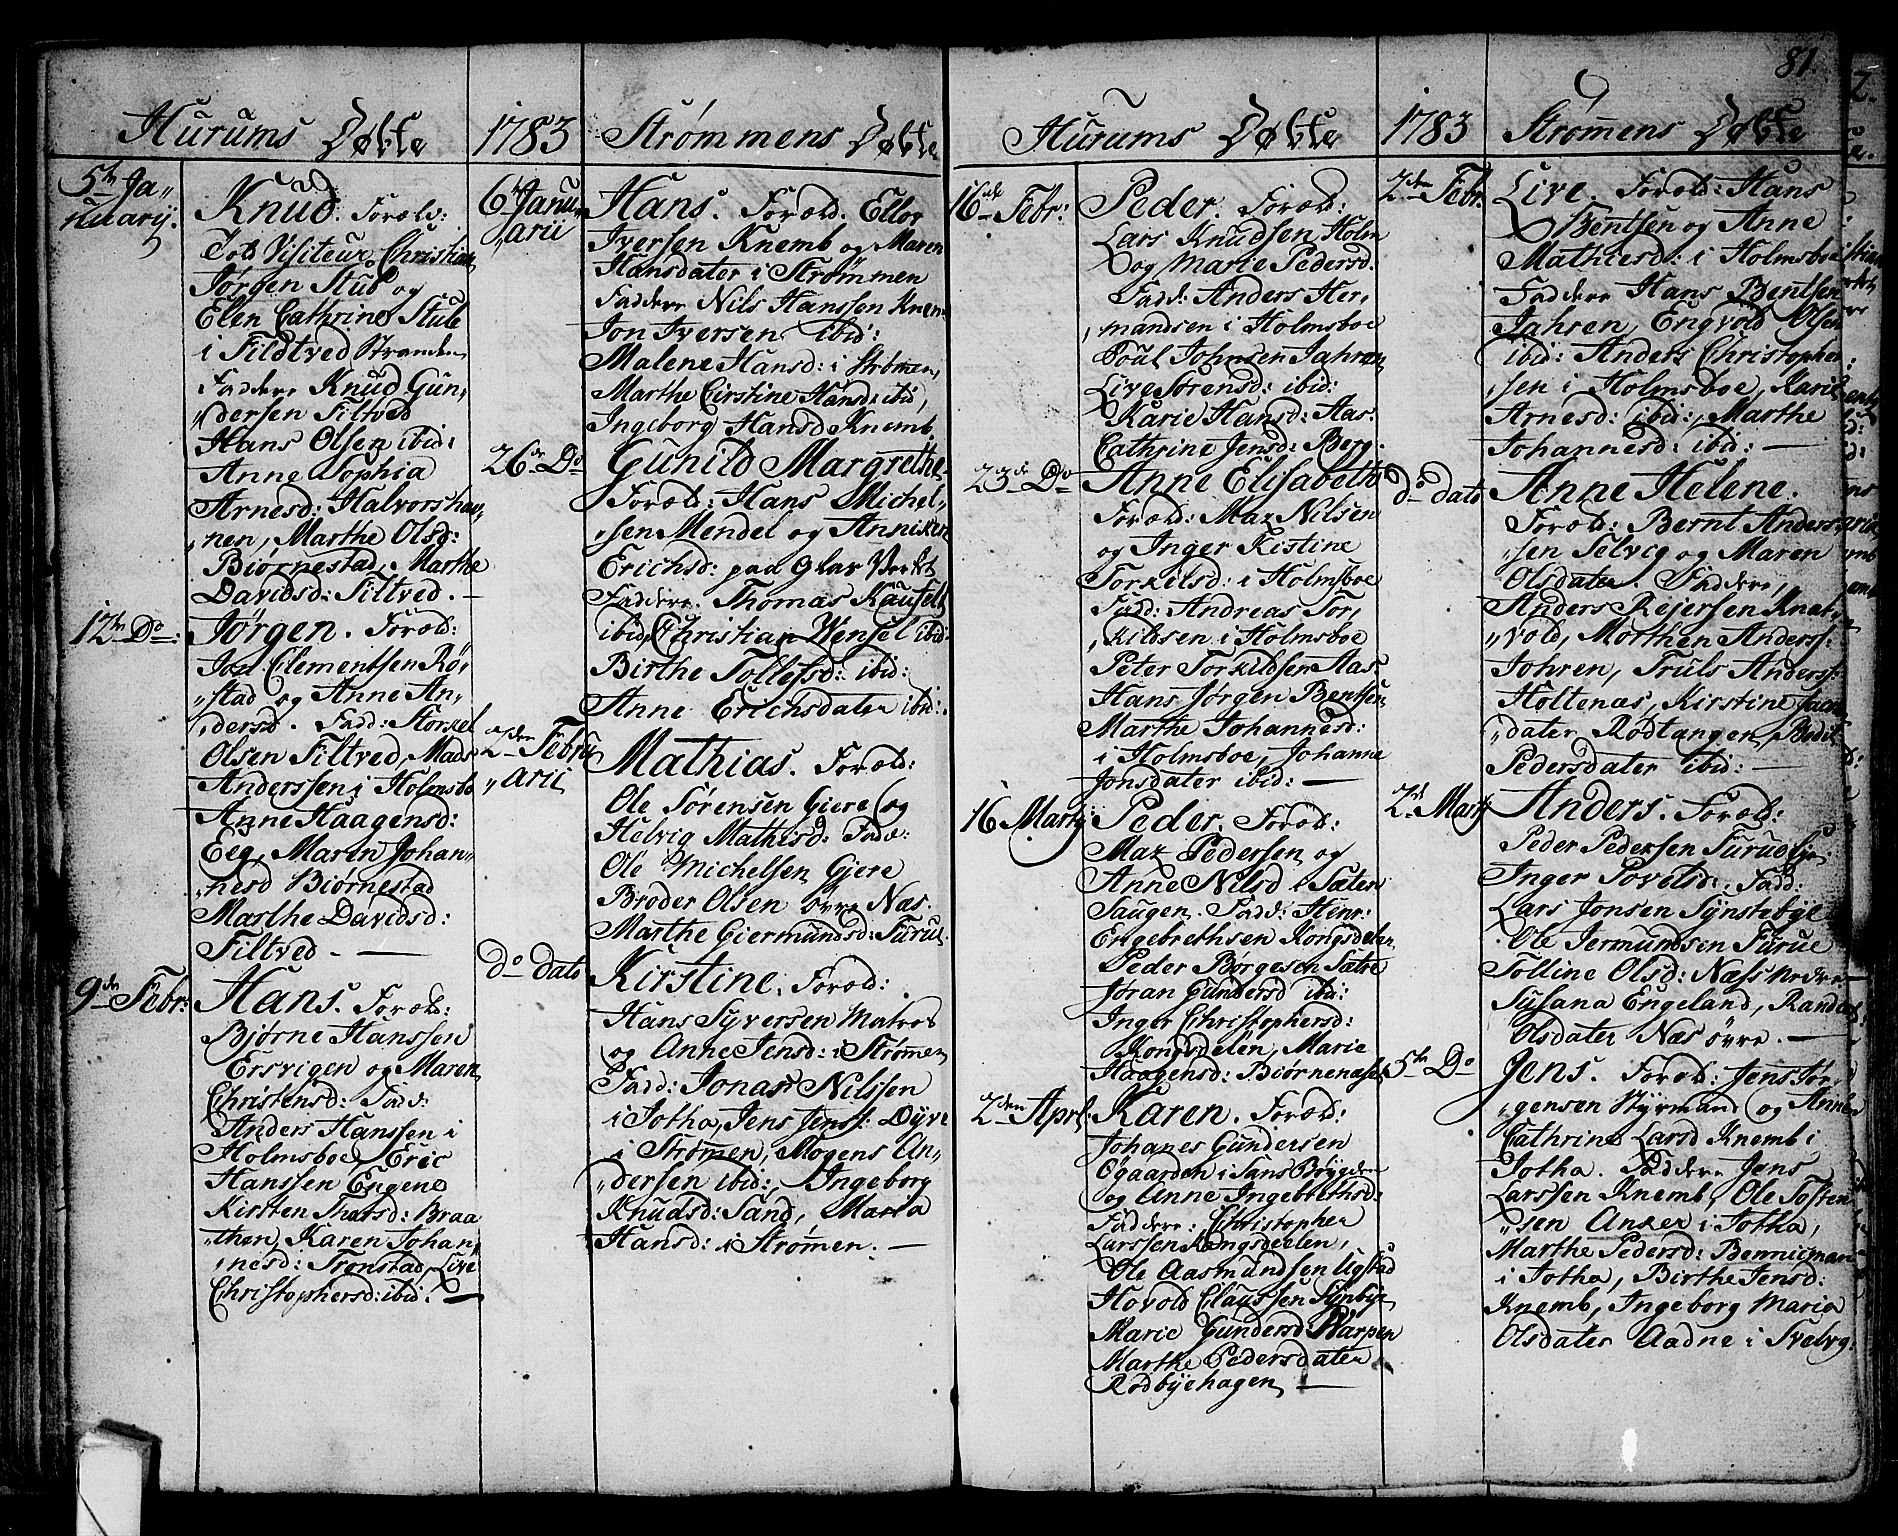 81.
Hurums Døbte
1783
Strømmens Døbte
5te Ja-
nuarij.
Knud. Foræld:
Told Visiteur Christian
Jørgen Stub og
Elen Cathrine Stub
i Fildtved Stranden
Faddere Knud Gun-
„dersen Filtved
Hans Olsen ibid:
Anne Sophia
Arnesd: Halvorshav-
„nen, Marthe Olsd:
Biørnestad, Marthe
Davidsd: Filtved. —
12te Do:
Jørgen. Foræld:
Jon Clementsen Rø-
„stad og Anne An-
„dersd. Fadd: Storkel
Olsen Filtved, Mads
Anderssen i Holmsbo
Anne Haagensd:
Eeg, Maren Johan-
„nesd Biørnestad
Marthe Davidsd:
Filtved. —
9de Febr:
Hans. Foræld:
Bjørne Hanssen
Ersvigen og Maren
Christensd: Fadd:
Anders Hanssen i
Holmsboe, Eric
Hanssen Engene
Kirsten Thorsd: Braa
„then, Karen Johan
„nesd: Tronstad, Live
Christophersd: ibid: —
6te Janu-
„arii
Hans. Foræld. Ellor
Iversen Knemb og Maren
Hansdater i Strømmen
Faddere Nils Hanssen Knem
Jon Iversen ibid:
Malene Hansd: i Strømen,
Marthe Cirstine Hansd: ibid,
Ingeborg Hansd Knemb,
26de Do
Gunild Margrethe
Foræld: Hans Michel-
„sen Mendel og Anniken
Erichsd: paa Glas Verket
Faddere. Thomas Kaufeldt
ibid, Christian Wensel ibid:
Birthe Tollefsd: ibid:
Anne Erichsdater ibid:.
2den Febru
„arii
Mathias. Foræld:
Ole Sørensen Giere og
Helvig Mathisd: Fadd:
Ole Michelsen Gjere
Broder Olsen øvre Næs.
Marthe Giermundsd: Furue.
do dato
Kirstine. Foræld:
Hans Syversen Matros
og Anne Jensd: i Strømen
Fadd: Jonas Nilssen
i Tofta, Jens Jenss: Dyve
i Strømen, Mogens An-
„dersen ibid:, Ingeborg
Knudsd: Sand, Maria
Hansd: i Strømen. —
Hurums Døbte
1783
Strømens Døbte
16de Febr:
Peder. Foræld:
Lars Knudsen Holm
og Marie Pedersd:
Fadd: Anders Her,
„mandsen i Holmsboe
Poul Johnsen Jahren
Live Sørensd: ibid:
Karie Hansd: Aas:
Cathrine Jensd: Berg.
23de Do
Anne Elisabeth
Foræld: Maz Nilsen
og Inger Kistine
Torkilsd: i Holmsboe
Fadd: Andreas Tor,
„kildsen i Holmsboe
Peter Torkildsen Aas
Hans Jørgen Bentsen
Marthe Johannesd:
i Holmsboe, Johanne
Jonsdater ibid: —
16 Martij
Peder. Foræld:
Maz Pedersen og
Anne Nilsd i Sæten
Haugen. Fadd: Heinr:
Engebrethsen Kongsdelen,
Peder Børgesen Sætre
Jøran Gundersd ibid:
Inger Christophersd:
Kongsdelen, Marie
Haagensd: Biørnenæset
2den Apri:
Karen. Foræld:
Johanes Gundersen
Øgaarden i Sans Bøygden
og Anne Ingebrethsd:
Faddere: Christopher
Larssen Kongsdelen,
Ole Aasmundsen Ugstad
Hovold Claussen Synbye
Marie Gundersd: Warpen
Marthe Pedersdater
Rødbyehagen —
2den Febr:
Live. Foræld: Hans
Bentsen og Anne
Mathiesd: i Holmsboe
Faddere Hans Bentsen
Jahren, Engvold Olsen
ibid: Anders Christopher
„sen i Holmsboe, Karie
Arnesd: ibid:, Marthe
Johannesd: ibid: —
do dato
Anne Helene.
Foræld: Bernt Anders-
„sen Selvig og Maren
Olsdater. Faddere,
Anders Rejersen Knat,
„vold, Morthen Anderss:
Johren, Truls Anderss:
Holtenæs, Kirstine Jacobs
„dater Rødtangen, Bodil
Pedersdater ibid: —
2de Martij
Anders. Foræld:
Peder Pedersen Furue og
Inger Povelsd:, Fadd:
Lars Jonsen Synstebye
Ole Jermundsen Furue
Tolline Olsd: Næss nedre—
Susana Engeland, Randi
Olsdater Næs øvre. —
5te Do
Jens. Foræld: Jens Jør,
„gensen Styrmand og Anne
Cathrine Larsd Knemb i
Tofta. Faddere Jens
Larssen Knemb, Ole Tosten
„sen Anker i Tofta,
Marthe Pedersd: Bennicman
i Tofta, Birthe Jensd:
Knemb, Ingeborg Maria
Olsdater Aadne i Svebyg.